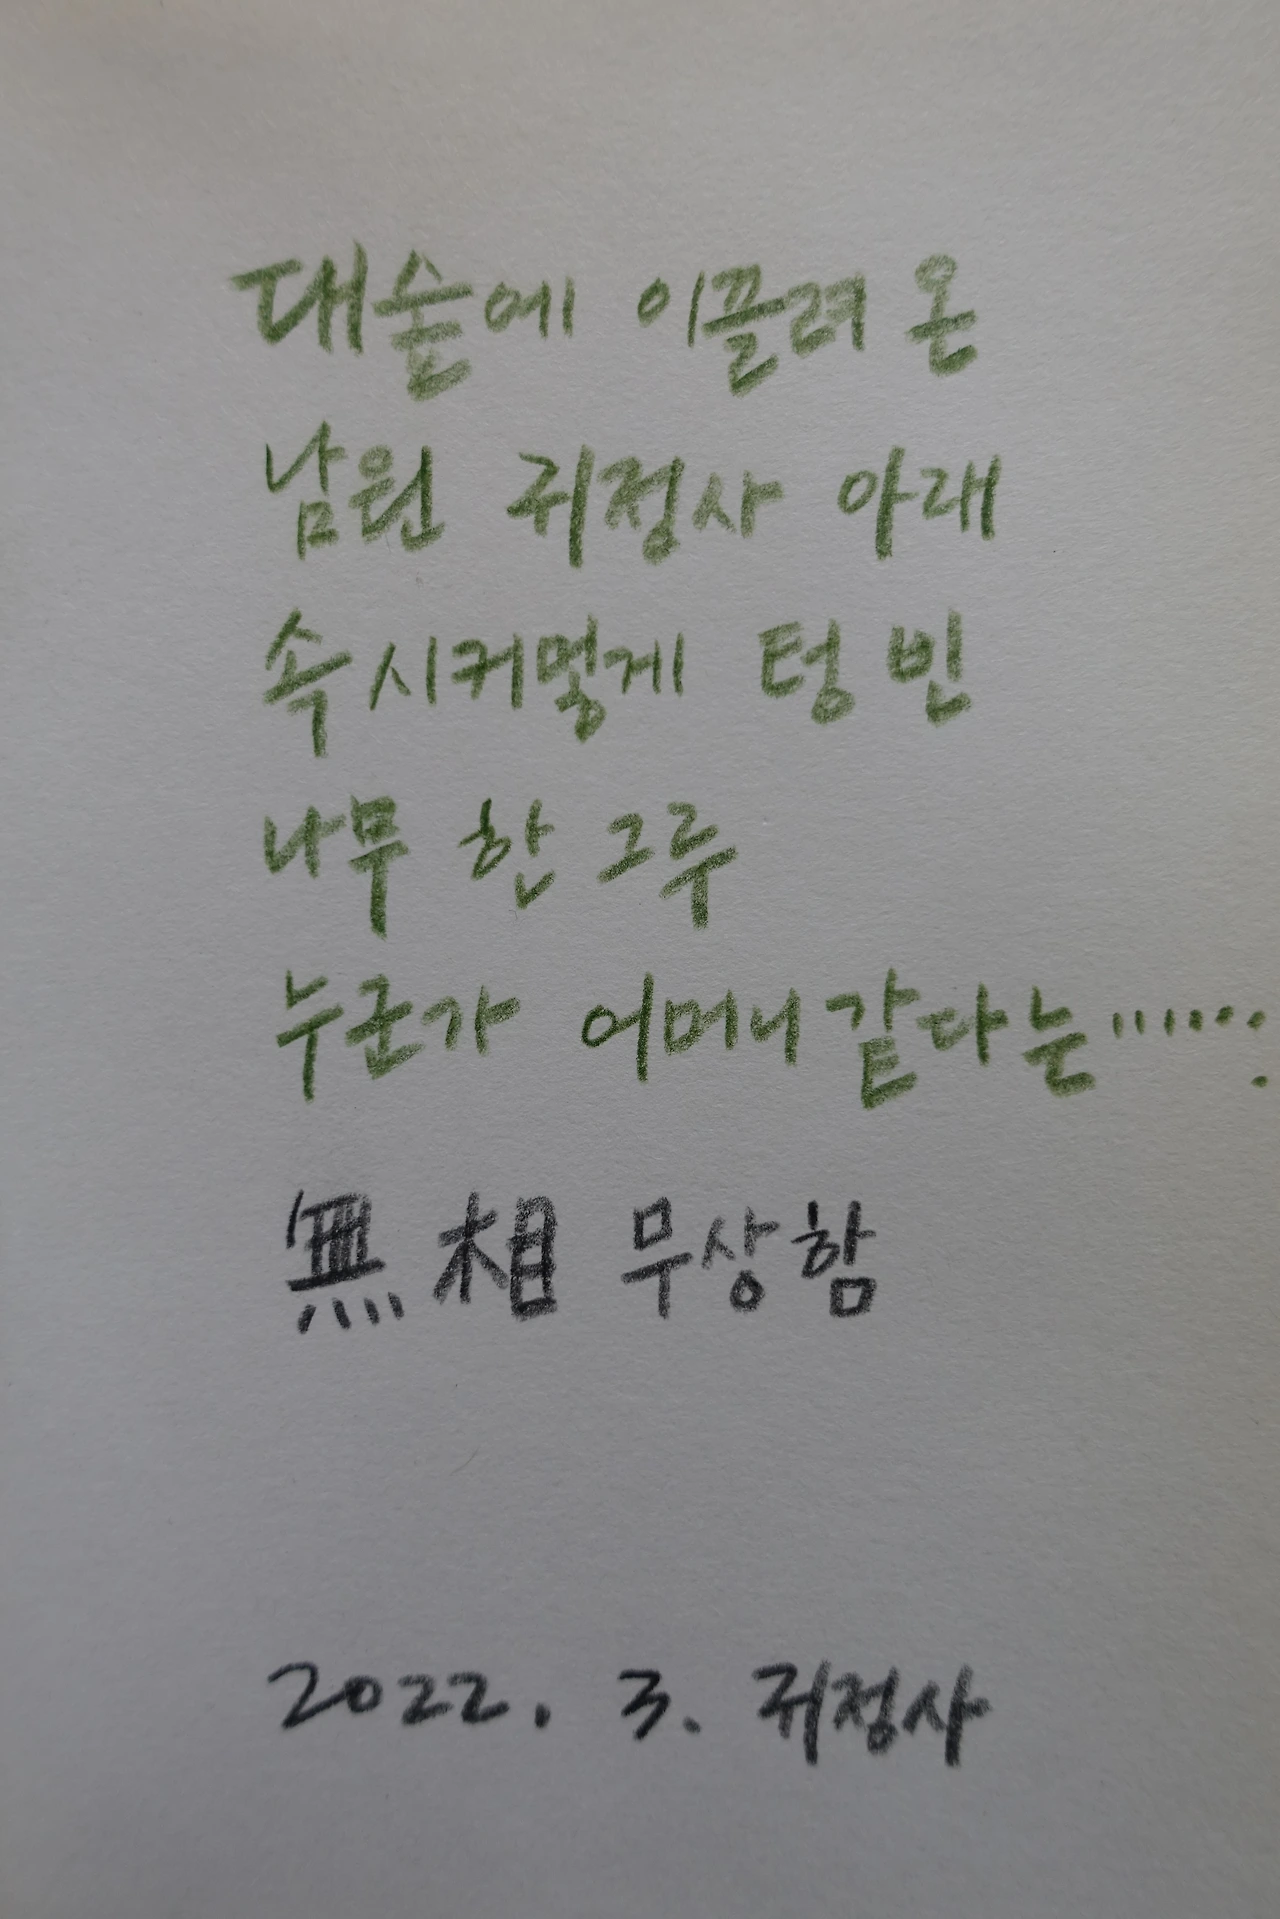 대숲에 이끌려 온
남원 귀정사 아래
속 시커멓게 텅 빈
나무 한 그루
누군가 어머니 같다는.......
無相 무상함
2022. 3. 귀정사